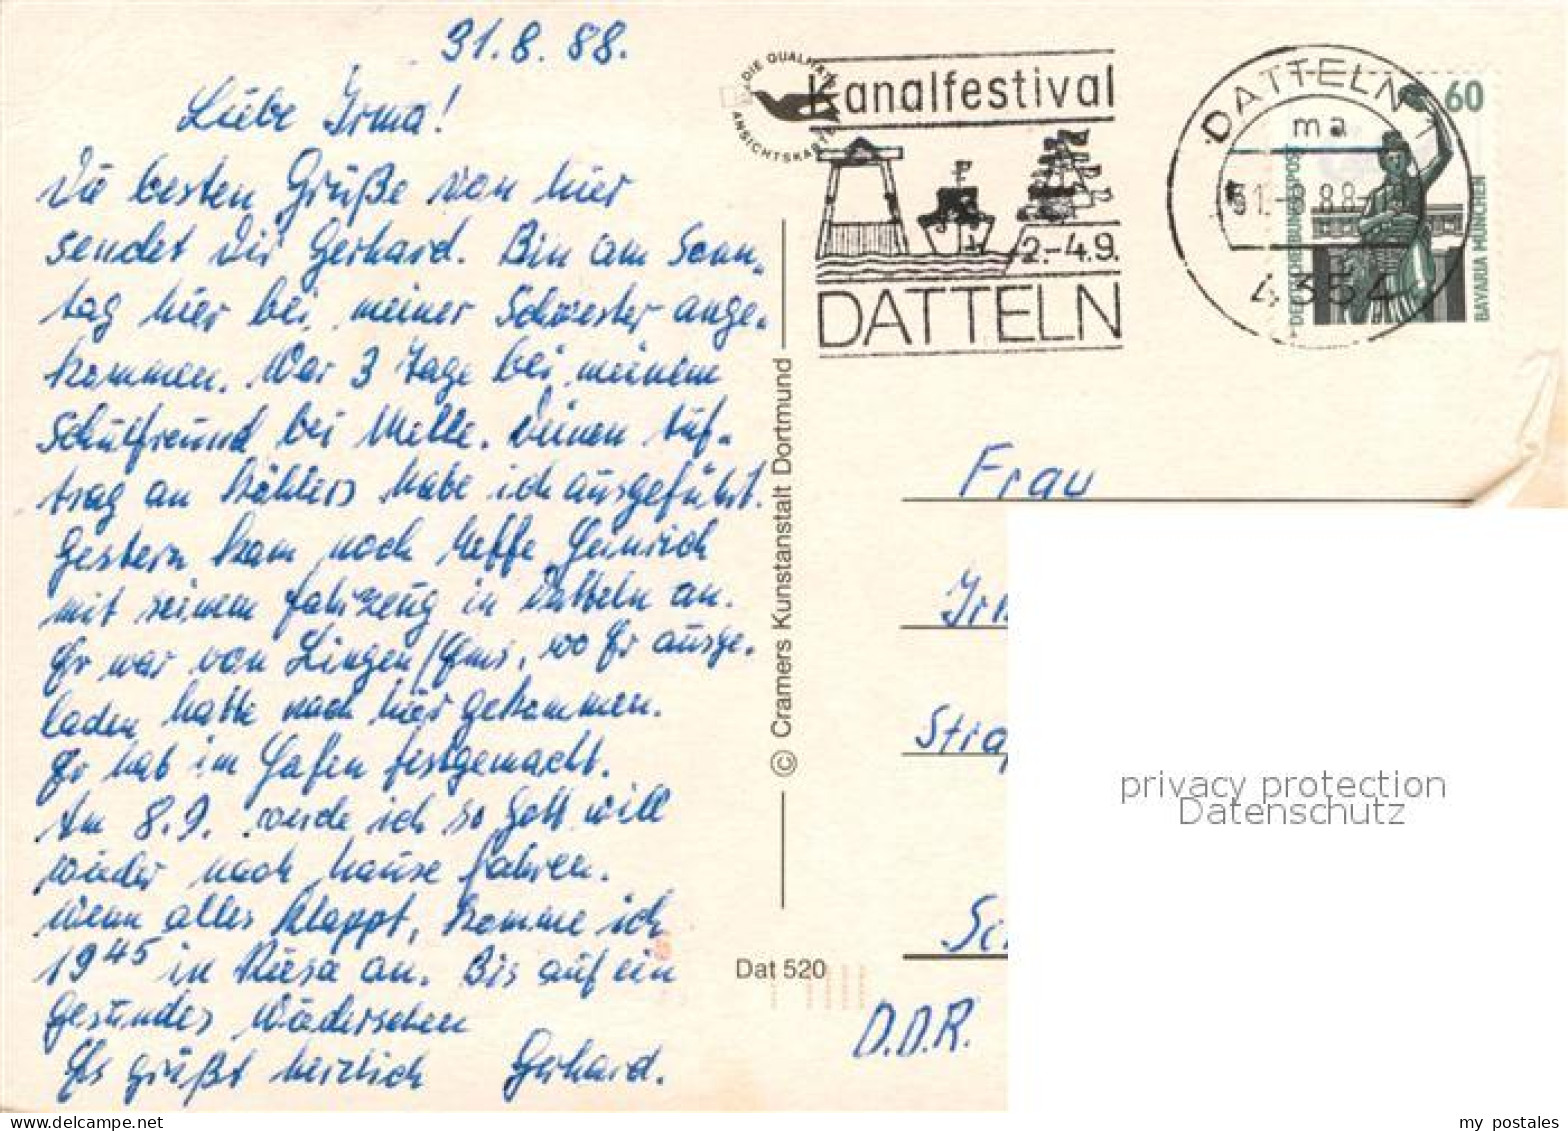 31.8.88.
Liebe Irma!
Die besten Grüße von hier
sendet Dir Gerhard. Bin am Sonn-
tag hier bei meiner Schwester ange-
kommen. War 3 Tage bei meinem
Schulfreund bei Melle. Deinen Auf-
trag an Köhlers habe ich ausgeführt.
Gestern kam noch Neffe Heinrich
mit seinem Fahrzeug in Datteln an.
Er war von Lingen/Ems, wo Er ausge-
laden hatte nach hier gekommen.
Er hat im Hafen festgemacht.
Am 8.9. werde ich so Gott will
wieder nach hause fahren.
Wenn alles klappt, komme ich
19⁴⁵ in Riesa an. Bis auf ein
gesundes Wiedersehen
Es grüßt herzlich Gerhard.
DIE QUALITÄTS
ANSICHTSKARTE
Kanalfestival
2.-4.9.
DATTELN
DATTELN 1
ma
31.-8.88
4354
60
DEUTSCHE BUNDESPOST
BAVARIA MÜNCHEN
© Cramers Kunstanstalt Dortmund
Dat 520
Frau
D.D.R.
privacy protection
Datenschutz
my postales